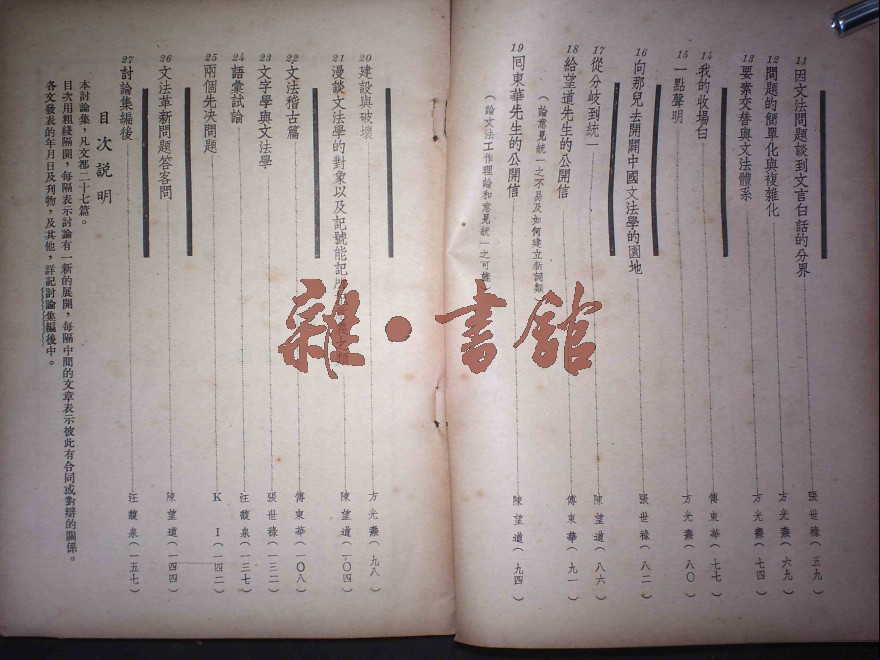 11 因文法問題談到文言白話的分界 張世祿(五九)
12 問題的簡單化與複雜化 方光燾(六九)
13 要素交替與文法體系 方光燾(七四)
14 我的收場白 傅東華(七七)
15 一點聲明 方光燾(八〇)
16 向那兒去開闢中國文法學的園地 張世祿(八二)
17 從分歧到統一 陳望道(八六)
18 給望道先生的公開信 傅東華(九一)
(論意見統一之不易及如何建立新詞類
19 囘東華先生的公開信 陳望道(九四)
(論文法工作理論和意見統一之可
20 建設與破壞 方光燾(九八)
21 漫談文法學的對象以及記號能記 陳望道(一〇四)
22 文法稽古篇 傅東華(一〇八)
23 文字學與文法學 張世祿(一三二)
24 語彙試論 汪馥泉(一三七)
25 兩個先决問題 K I(一四二)
26 文法革新問題答客問 陳望道(一四四)
27 討論集編後 汪馥泉(一五七)
目次說明
本討論集,凡文都二十七篇。
目次用粗綫隔開,每隔表示討論有一新的展開,每隔中間的文章表示彼此有合同或對辯的關係。
各文發表的年月日及刊物,及其他,詳記討論集編後中。
雜·書館